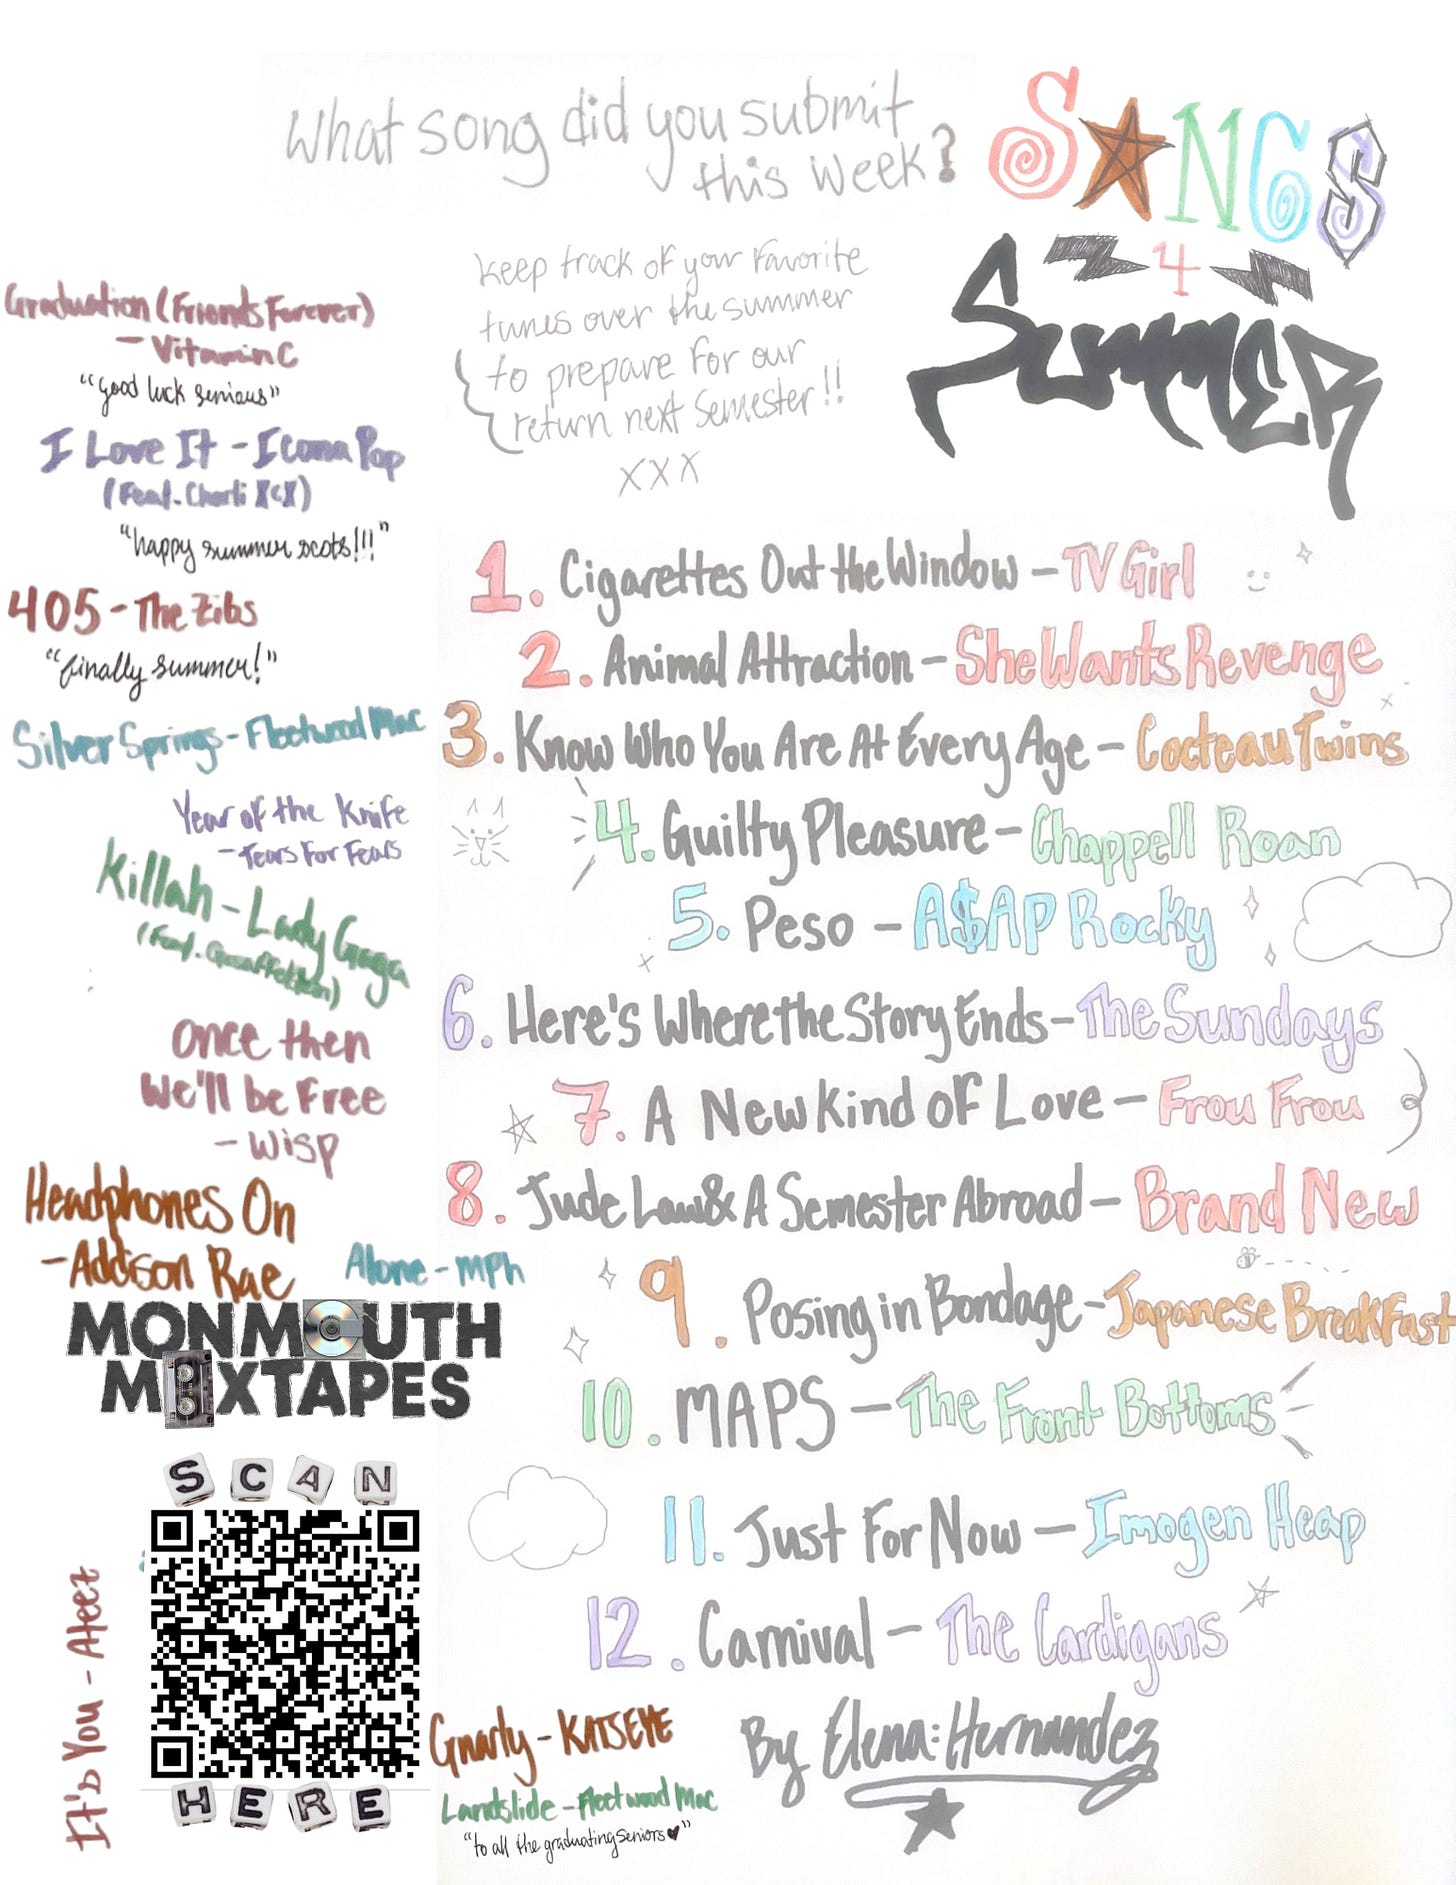 What song did you submit
this week?
SONGS
4
SUMMER
keep track of your favorite
tunes over the summer
to prepare for our
return next semester!!
XXX
Graduation (Friends Forever)
- Vitamin C
"good luck seniors"
I Love It - Icona Pop
(Feat. Charli XCX)
"happy summer scots!!!"
405 - The Zibs
"finally summer!"
Silver Springs - Fleetwood Mac
Year of the Knife
- Tears For Fears
Killah - Lady Gaga
(Feat. Gesaffelstein)
Once then
We'll be Free
- Wisp
Headphones On
- Addison Rae
Alone - mph
MONMOUTH
MIXTAPES
SCAN
HERE
It's You - Ateez
1. Cigarettes Out the Window - TV Girl
2. Animal Attraction - She Wants Revenge
3. Know Who You Are At Every Age - Cocteau Twins
4. Guilty Pleasure - Chappell Roan
5. Peso - A$AP Rocky
6. Here's Where the Story Ends - The Sundays
7. A New Kind of Love - Frou Frou
8. Jude Law & A Semester Abroad - Brand New
9. Posing in Bondage - Japanese Breakfast
10. MAPS - The Front Bottoms
11. Just For Now - Imogen Heap
12. Carnival - The Cardigans
Gnarly - KATSEYE
Landslide - Fleetwood Mac
"to all the graduating seniors ♥"
By Elena Hernandez